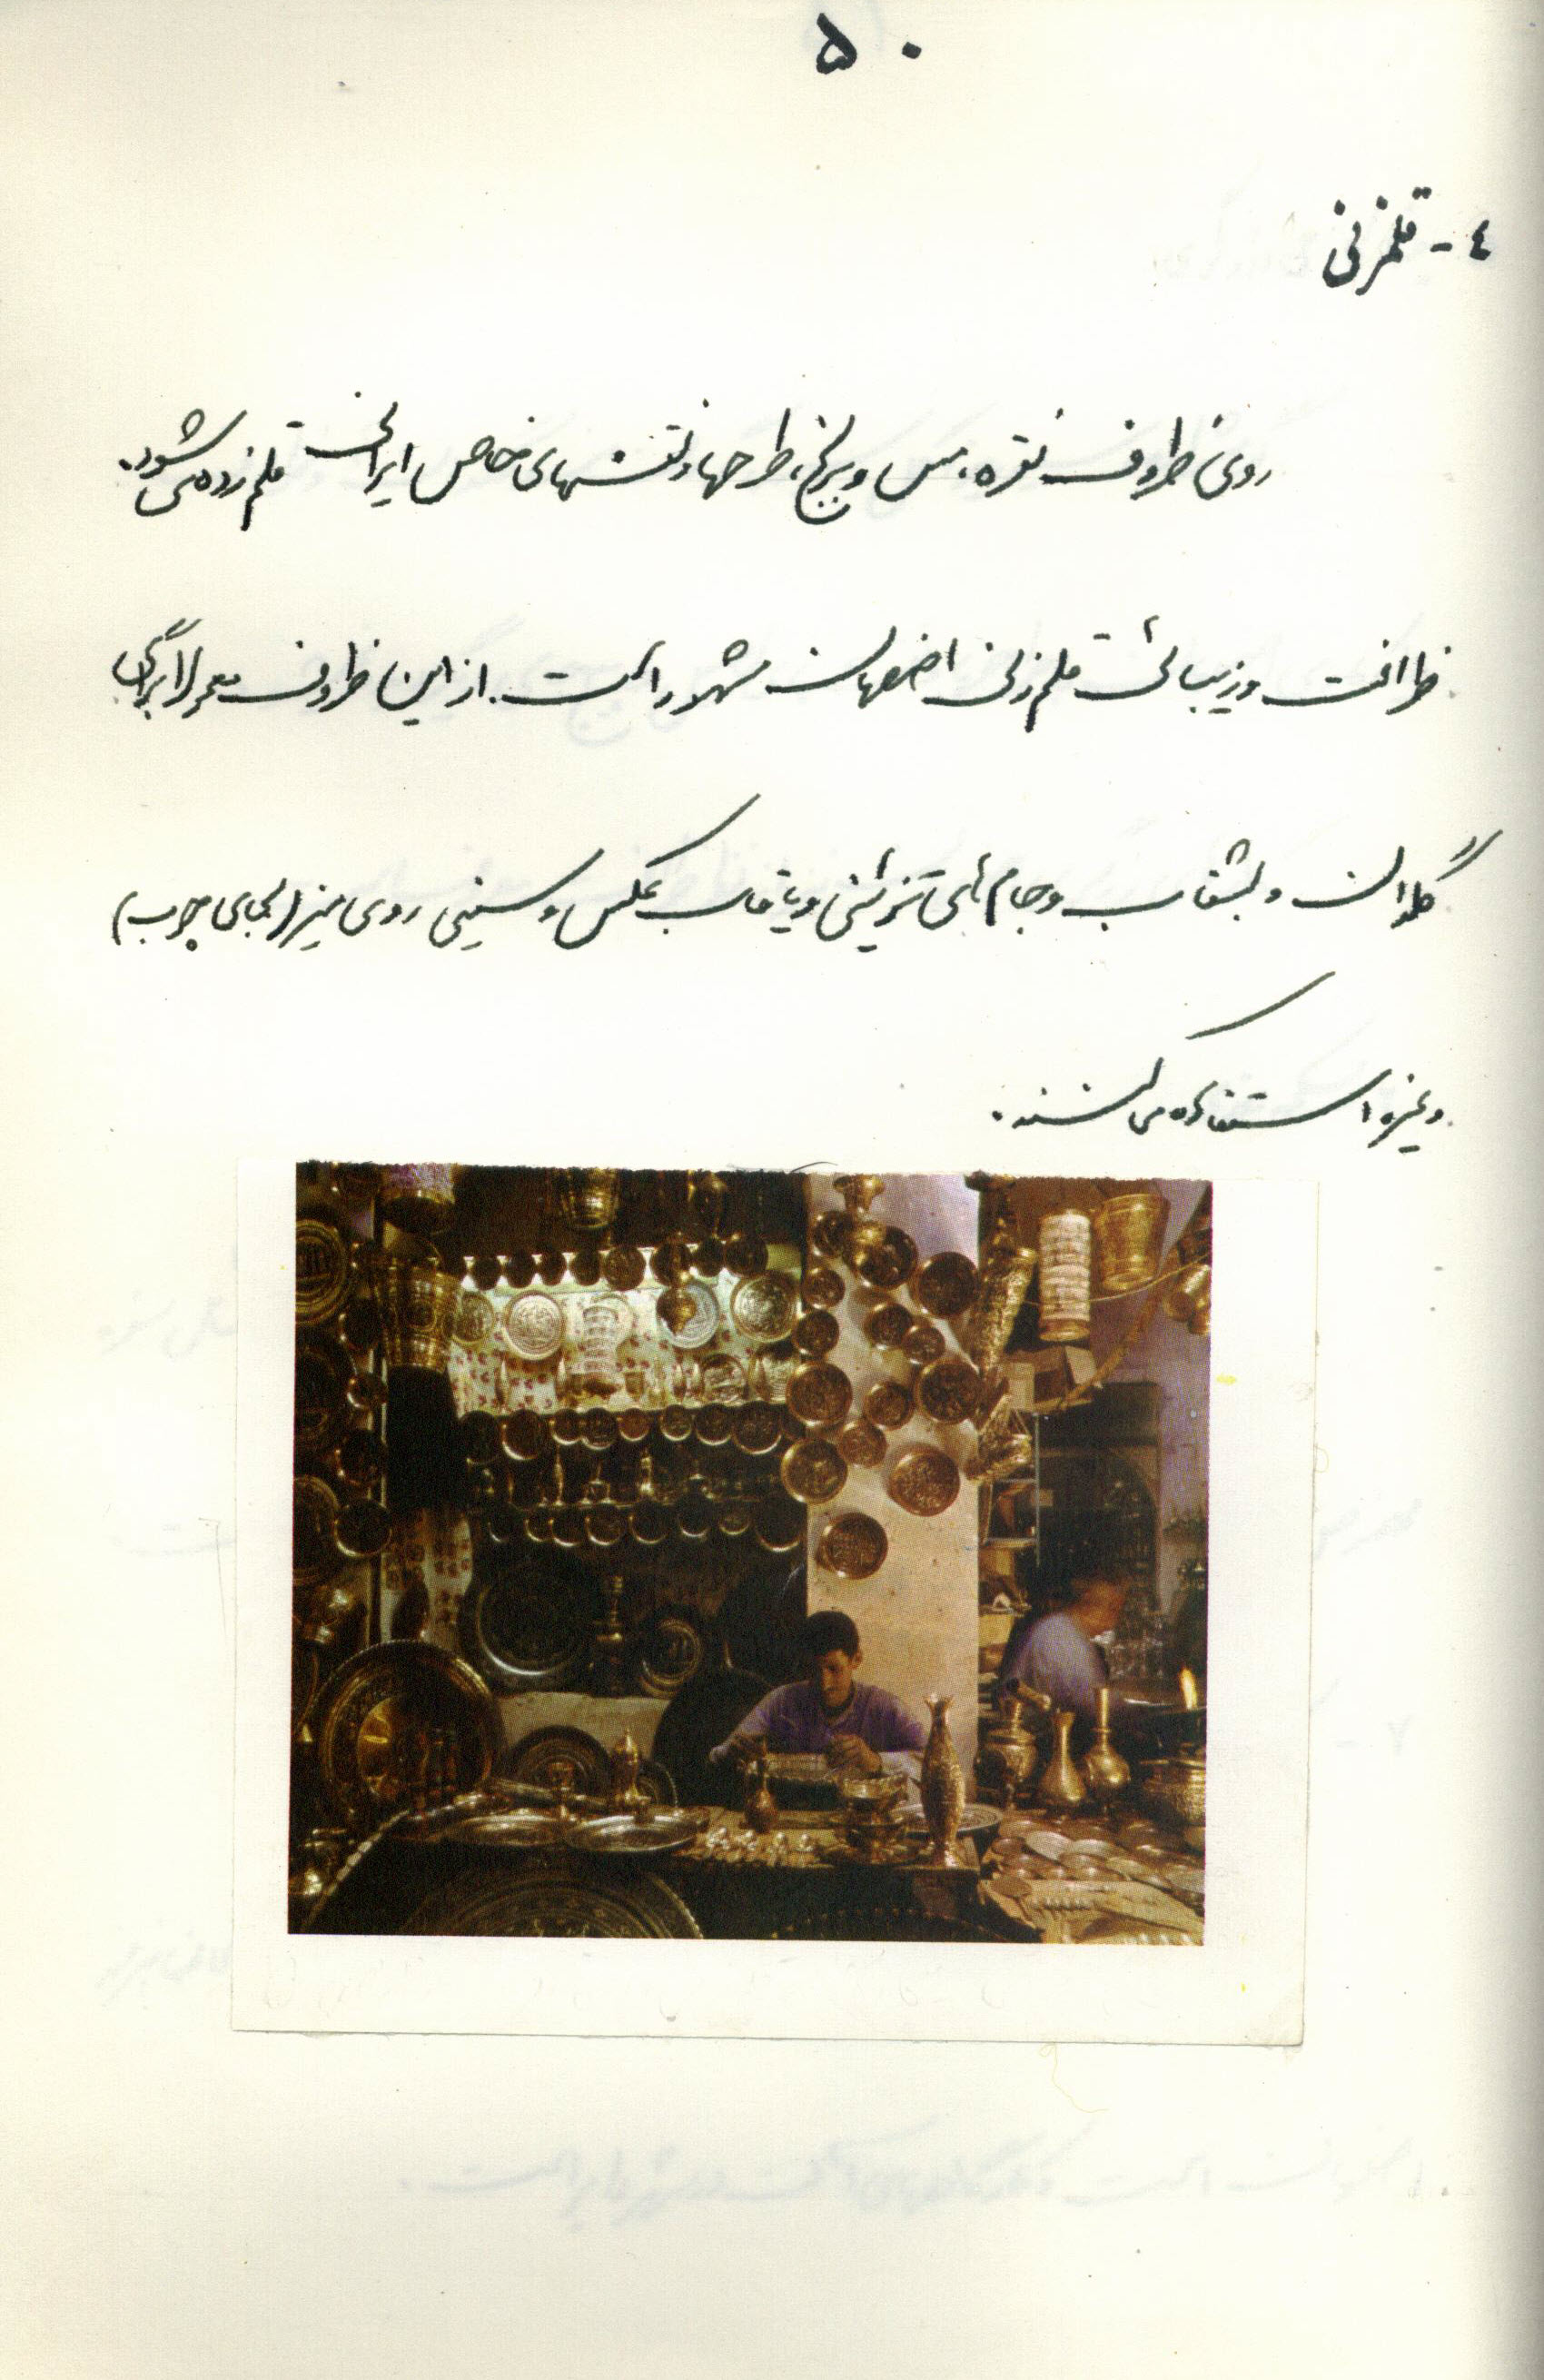 ۵۰
٤- قلمزنی
روی ظروف نقره، مس و برنج، طرحها و نقشهای خاص ایرانی قلم زده می‌شود.
ظرافت و زیبائی قلم زنی اصفهان مشهور است. از این ظروف معمولا برای
گلدان و بشقاب و جام های تزئینی و یا قاب عکس و سینی روی میز (بجای چوب)
و غیره استفاده می کنند.